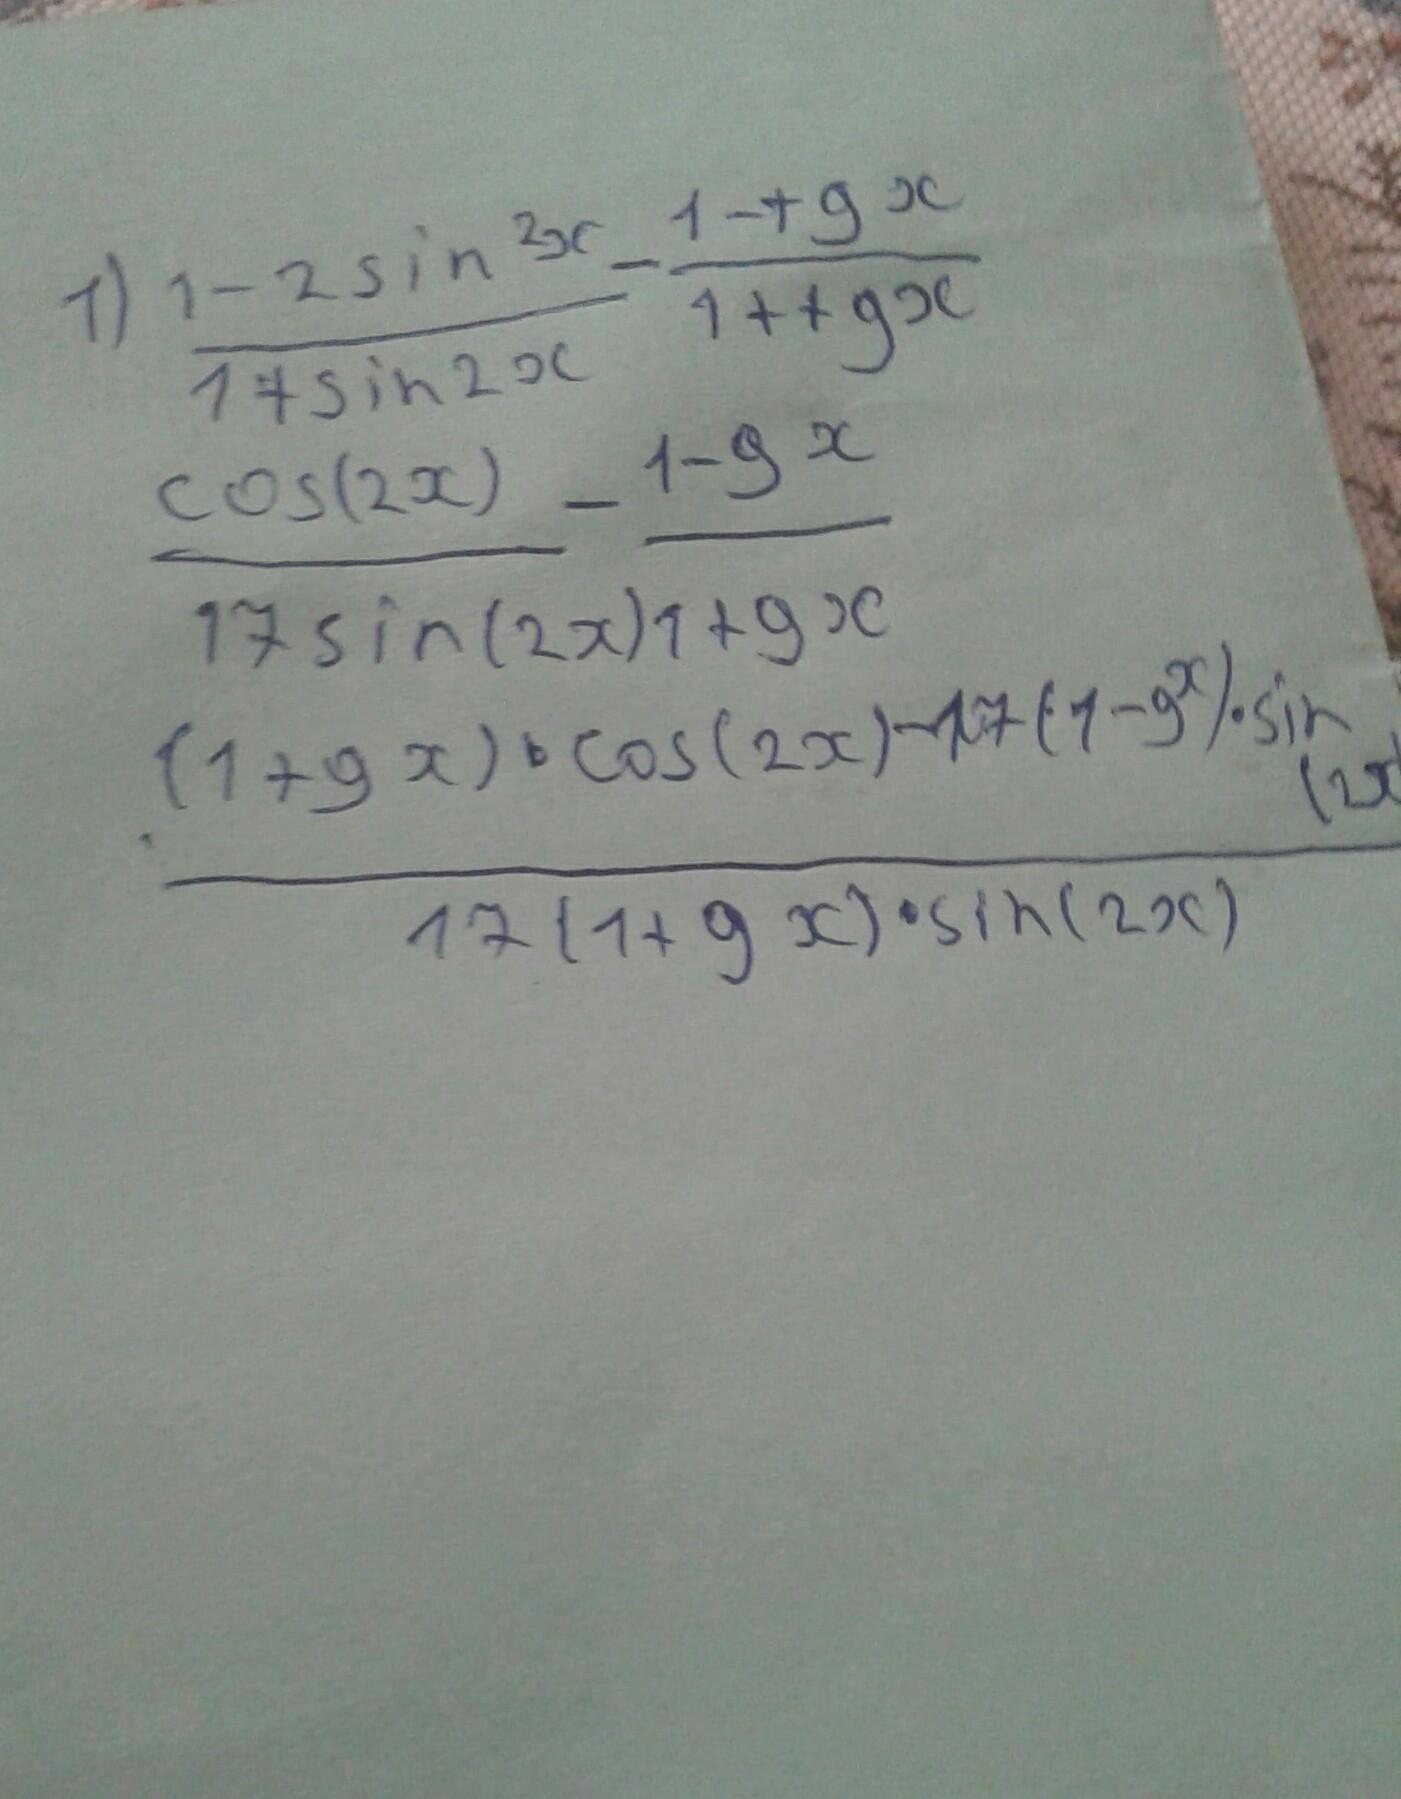 1) (1-2sin²x)/(17sin2x) - (1-tgx)/(1+tgx)
cos(2x) - 1-gx
17sin(2x)1+gx
(1+gx)·cos(2x)-17(1-gˣ)·sin(2x)
17(1+gx)·sin(2x)